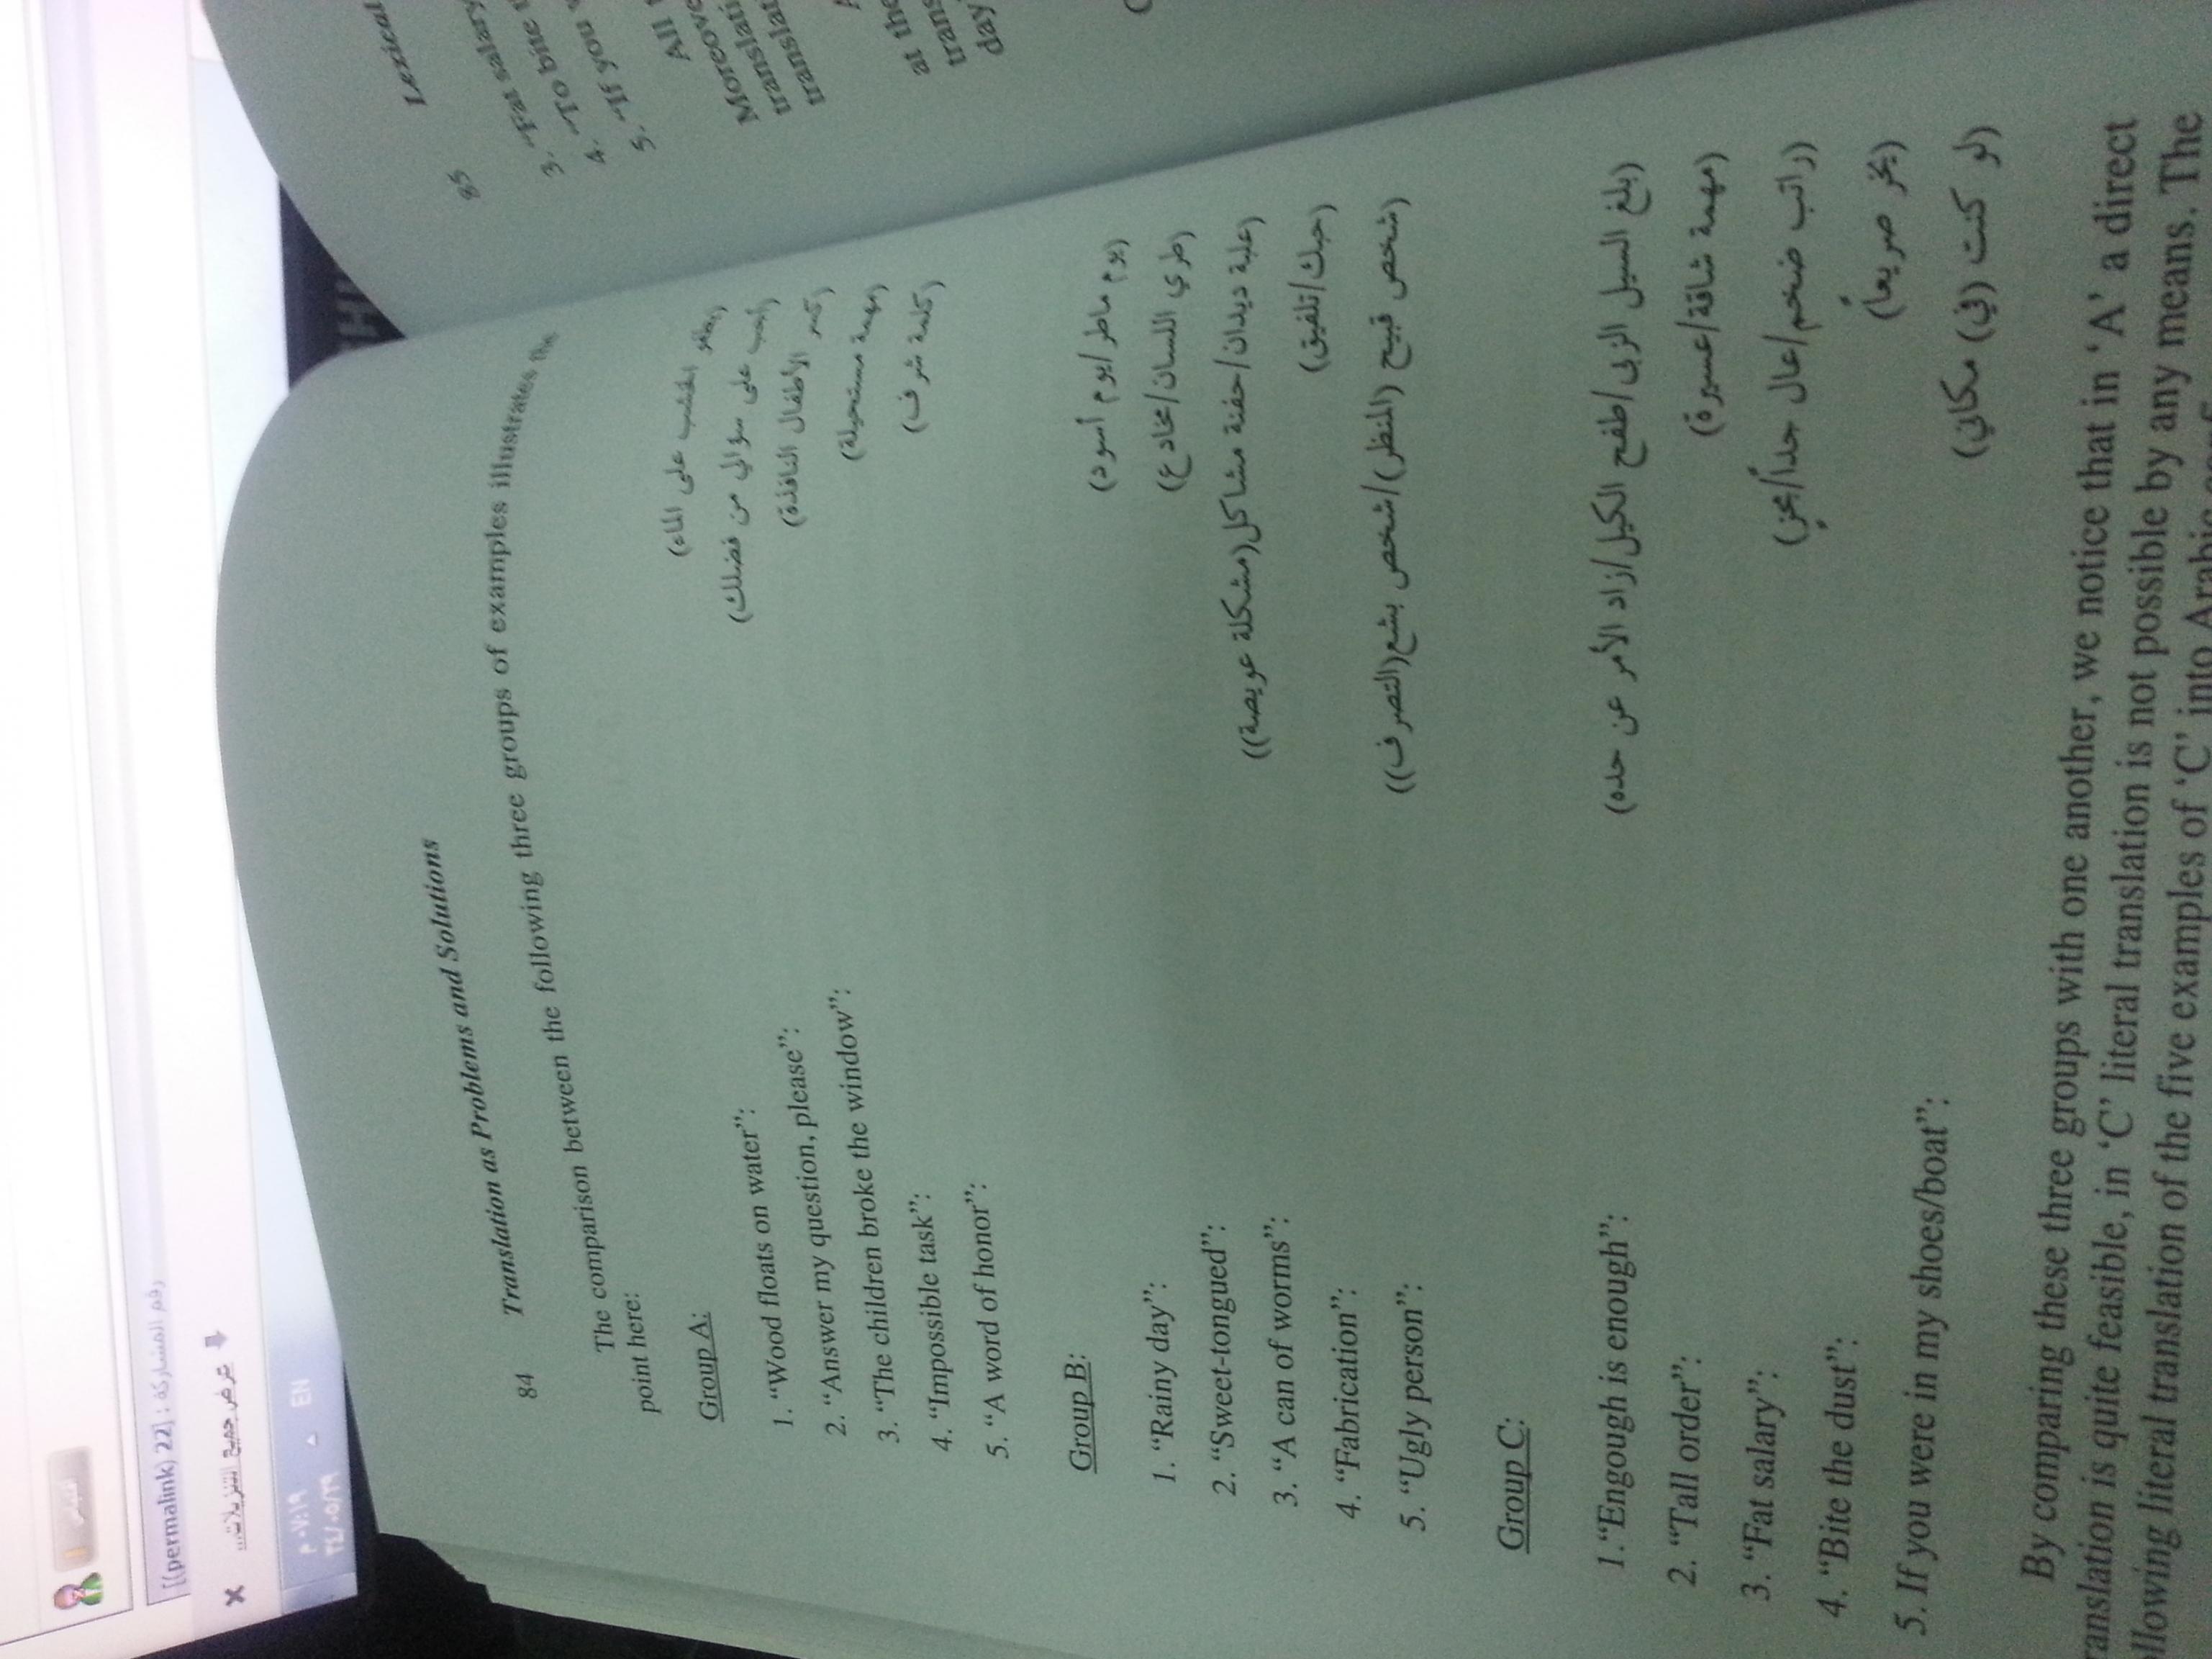 84 Translation as Problems and Solutions
The comparison between the following three groups of examples illustrates the
point here:
Group A:
1. “Wood floats on water”: (يطفو الخشب على الماء)
2. “Answer my question, please”: (أجب على سؤالي من فضلك)
3. “The children broke the window”: (كسر الأطفال النافذة)
4. “Impossible task”: (مهمة مستحيلة)
5. “A word of honor”: (كلمة شرف)
Group B:
1. “Rainy day”: (يوم ماطر/يوم أسود)
2. “Sweet-tongued”: (طري اللسان/مخادع)
3. “A can of worms”: (علبة ديدان/حفنة مشاكل(مشكلة عويصة))
4. “Fabrication”: (حبك/تلفيق)
5. “Ugly person”: (شخص قبيح (المنظر)/شخص بشع(التصرف))
Group C:
1.“Engough is enough”: (بلغ السيل الزبى/طفح الكيل/زاد الأمر عن حده)
2. “Tall order”: (مهمة شاقة/عسيرة)
3. “Fat salary”: (راتب ضخم/عال جداً/مجز)
4. “Bite the dust”: (يخر صريعاً)
5. If you were in my shoes/boat”: (لو كنت (في) مكاني)
By comparing these three groups with one another, we notice that in ‘A’ a direct
ranslation is quite feasible, in ‘C’ literal translation is not possible by any means. The
llowing literal translation of the five examples of ‘C’ into Arabic
85 Lexical
3. “Fat salary
4. “To bite
5. “If you
All
Moreover
translati
translat
at the
trans
day
[(permalink) 22] : رقم المشاركة
عرض جميع التنزيلات...
EN
٠٧:١٩ م